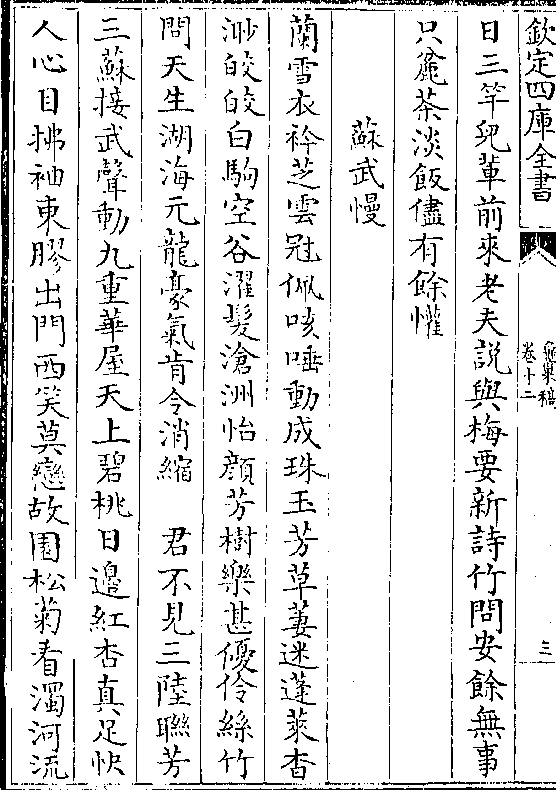 欽定四庫全書
龜巢稿
卷十二
三
日三竿兒輩前來老夫説與梅要新詩竹問安餘無事
只麄茶淡飯儘有餘懽
蘇武慢
蘭雪衣衿芝雲冠佩咳唾動成珠玉芳草萋迷蓬萊杳
渺皎皎白駒空谷濯髮滄洲怡顔芳樹樂甚優伶絲竹
問天生湖海元龍豪氣肯令消縮　君不見三陸聯芳
三蘇接武聲動九重華屋天上碧桃日邊紅杏真足快
人心目拂袖東膠出門西笑莫戀故園松菊看濁河流